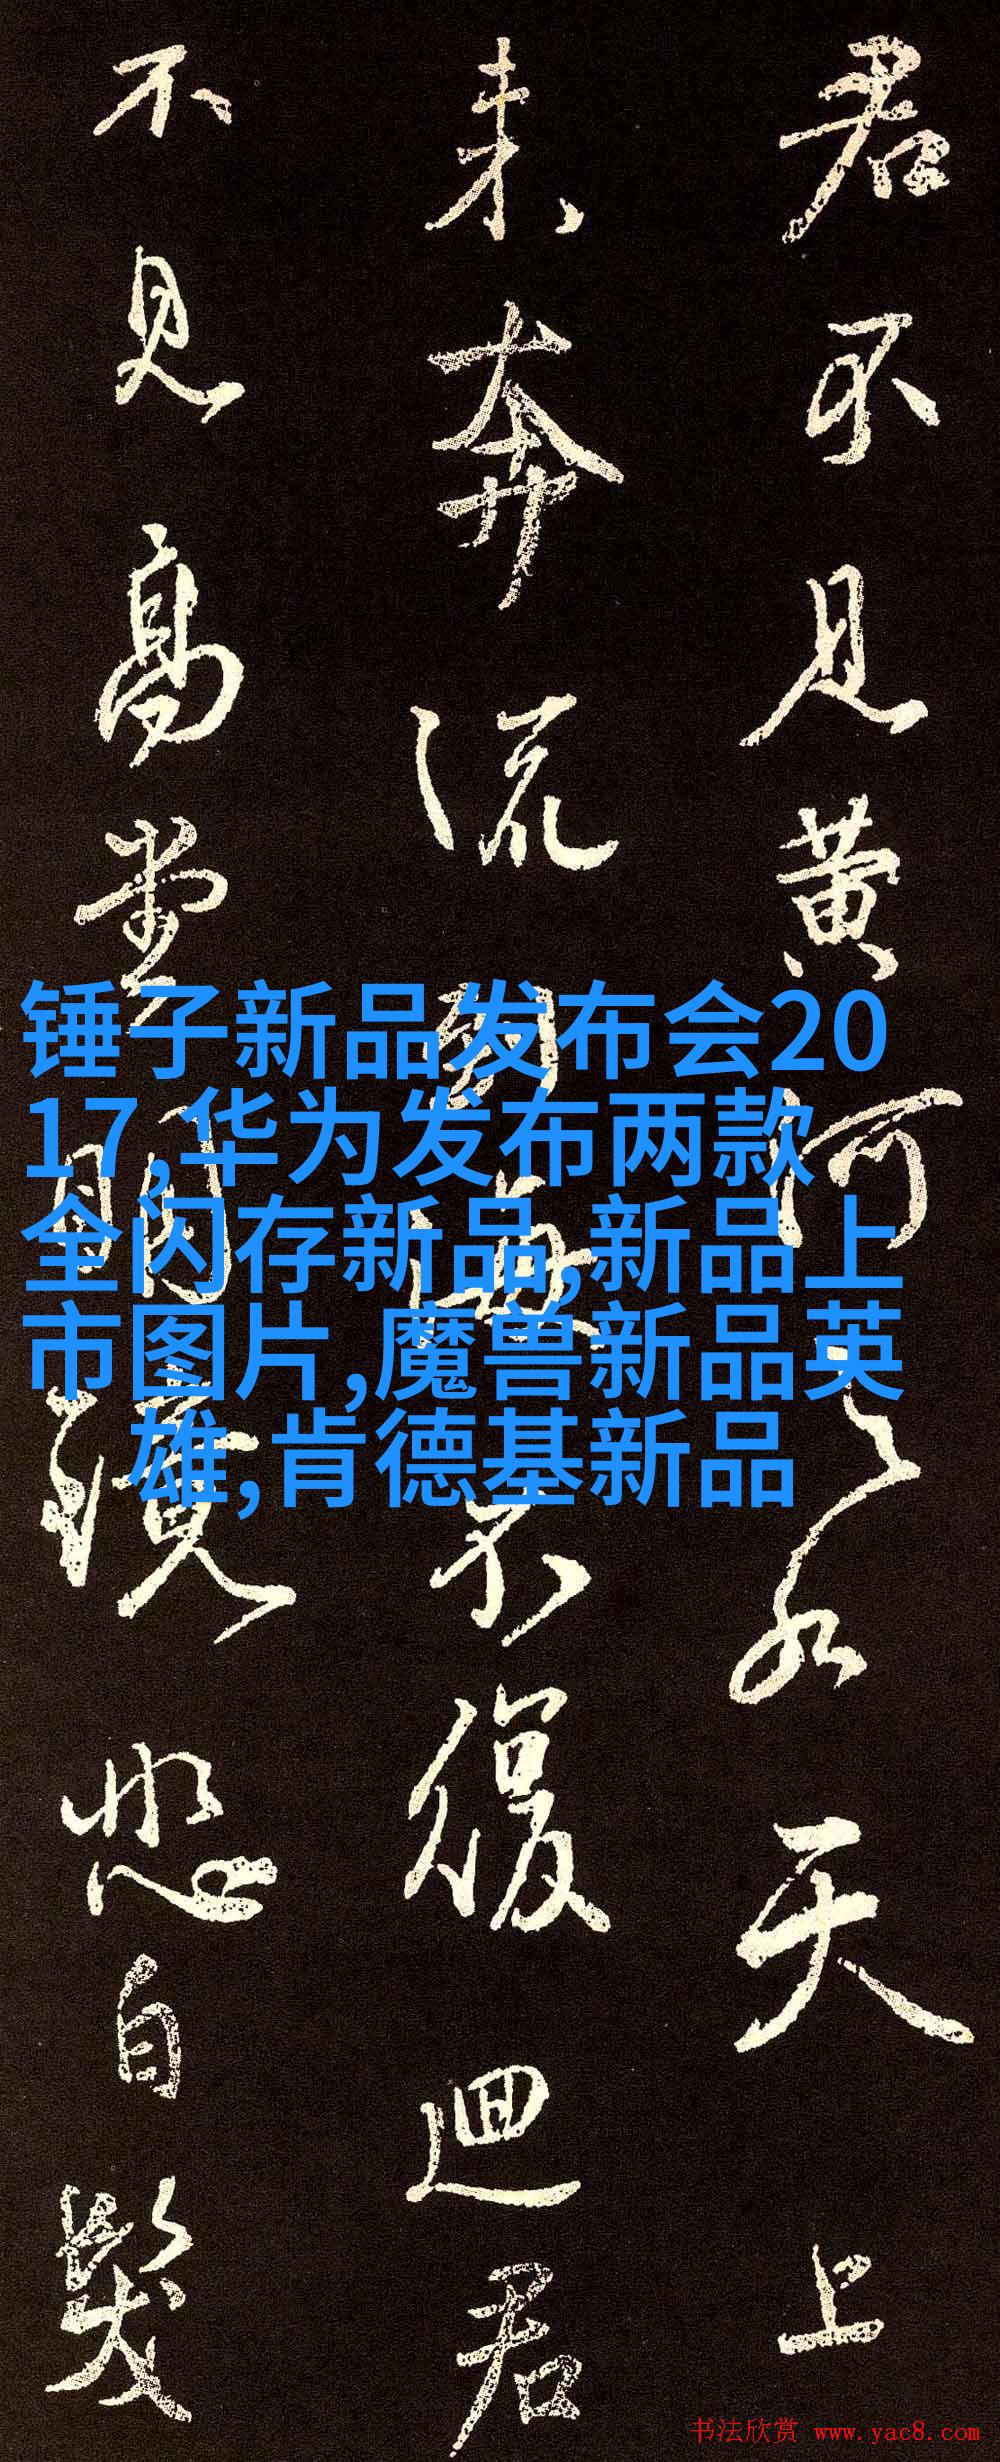 君不見黄河之水天上
来奔流到海不復迴君
不見高堂明鏡悲白髮
锤子新品发布会20
17,华为发布两款
全闪存新品,新品上
市图片,魔兽新品英
雄,肯德基新品
书法欣赏 www.yac8.com